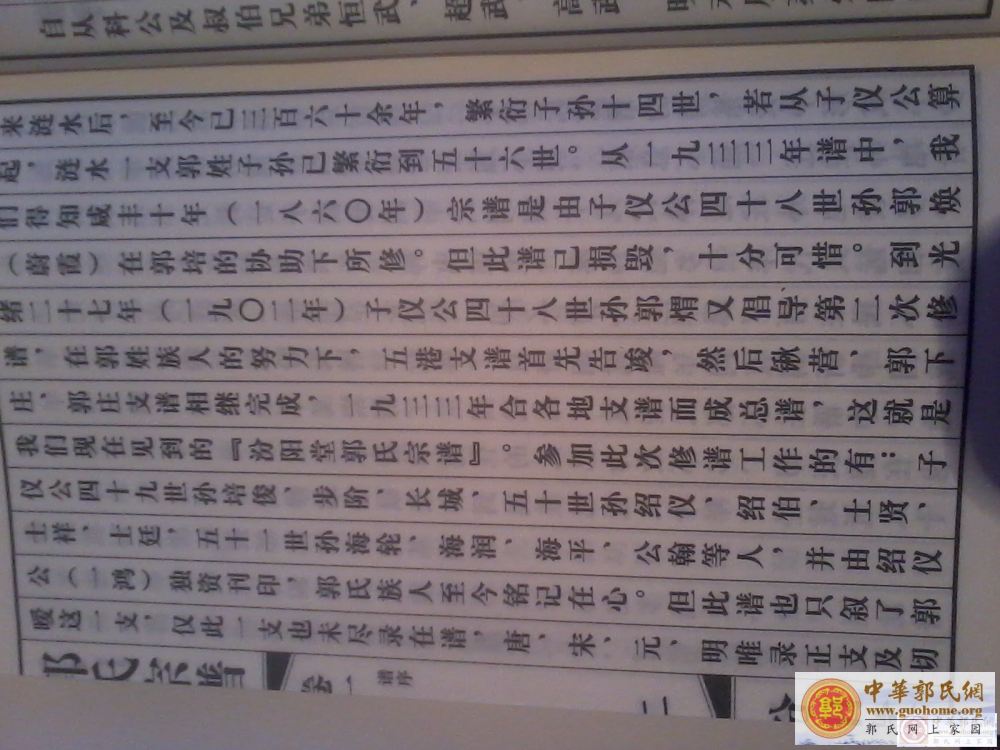 自从科公及叔伯兄弟恒武、
来涟水后，至今已三百六十余年，繁衍子孙十四世，若从子仪公算
起，涟水一支郭姓子孙已繁衍到五十六世。从一九三三年谱中，我
们得知咸丰十年（一八六〇年）宗谱是由子仪公四十八世孙郭焕
（蔚霞）在郭培的协助下所修。但此谱已损毁，十分可惜。到光
绪二十七年（一九〇二年）子仪公四十八世孙郭煟又倡导第二次修
谱，在郭姓族人的努力下，五港支谱首先告竣，然后锹营、郭下
庄、郭庄支谱相继完成，一九三三年合各地支谱而成总谱，这就是
我们现在见到的『汾阳堂郭氏宗谱』。参加此次修谱工作的有：子
仪公四十九世孙培俊、步阶、长城、五十世孙绍仪、绍伯、士贤、
士祥、士廷，五十一世孙海轮、海润、海平、公翰等人，并由绍仪
公（一鸿）独资刊印，郭氏族人至今铭记在心。但此谱也只叙了郭
暧这一支，仅此一支也未尽录在谱，唐、宋、元、明唯录正支及切
郭氏宗谱
卷一
谱序
二
中華郭氏網
www.guohome.org
郭氏网上家园